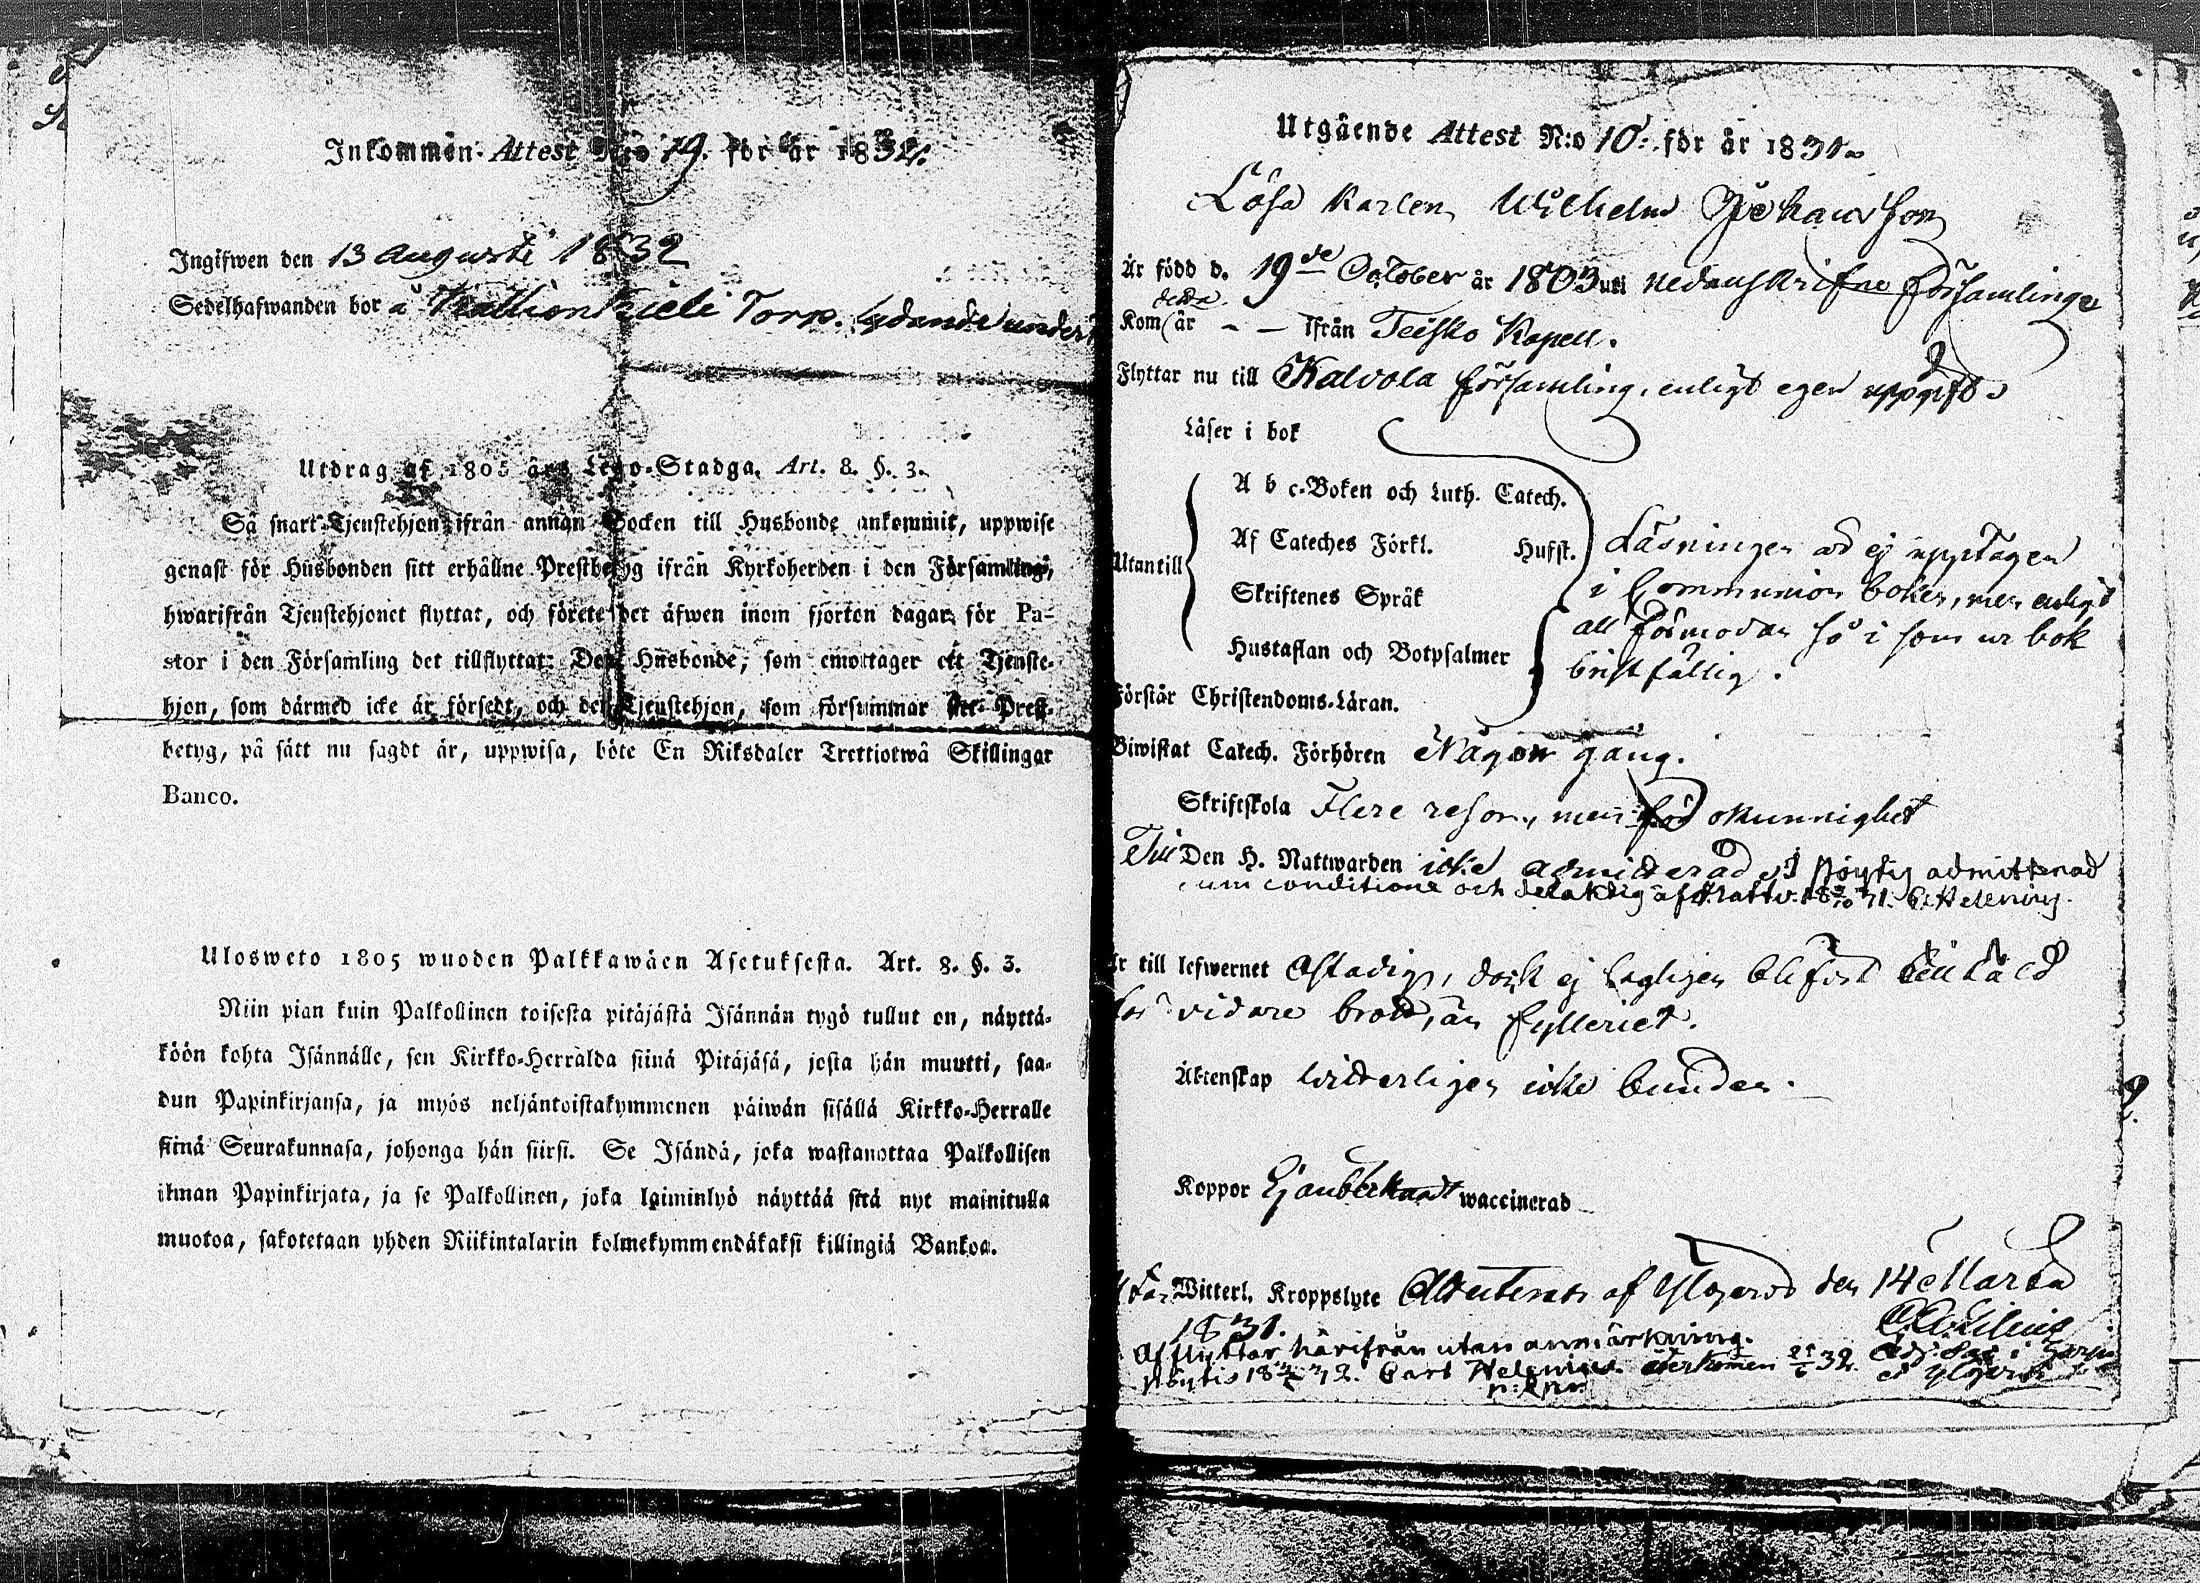 Inkommen Attest N:o 19. för år 1832.
Ingifwen den 13 Augusti 1832
Sedelhafwanden bor å Kallionkieli Torp. lydande under
Utdrag af 1805 års Lego-Stadga, Art. 8. §. 3.
Så snart Tjenstehjon ifrån annan Socken till Husbonde ankommit, uppwise
genast för Husbonden sitt erhållne Prestbetyg ifrån Kyrkoherden i den Församling,
hwarifrån Tjenstehjonet flyttat, och förete det äfwen inom fjorton dagar för Pa-
stor i den Församling det tillflyttat: Den Husbonde, som emottager ett Tjenste-
hjon, som därmed icke är försedt, och det Tjenstehjon, som försummar att Prest-
betyg, på sätt nu sagdt är, uppwisa, böte En Riksdaler Trettiotwå Skillingar
Banco.
Ulosweto 1805 wuoden Palkkawäen Asetuksesta. Art. 8. §. 3.
Niin pian kuin Palkollinen toisesta pitäjästä Isännän tygö tullut on, näyttä-
köön kohta Isännälle, sen Kirkko-Herralda siinä Pitäjäsä, josta hän muutti, saa-
dun Papinkirjansa, ja myös neljäntoistakymmenen päiwän sisällä Kirkko-Herralle
siinä Seurakunnasa, johonga hän siirsi. Se Isändä, joka wastanottaa Palkollisen
ilman Papinkirjata, ja se Palkollinen, joka laiminlyö näyttää sitä nyt mainitulla
muotoa, sakotetaan yhden Riikintalarin kolmekymmendäkaksi killingiä Bankoa.
Utgående Attest N:o 10. för år 1831.
Lösa Karlen Wilhelm Johansson
Är född d. 19de October år 1803 uti nedanskrifne församlingar
detta
Kom år - - ifrån Teisko Kapell.
Flyttar nu till Kalvola församling, enligt egen uppgift
Läser i bok
A b c-Boken och Luth. Catech.
Af Cateches Förkl.
Hufst.
Utantill
Skriftenes Språk
Hustaflan och Botpsalmer
Förstår Christendoms-Läran.
Läsningen ej upptagen
i Communion boken, men enligt
all förmodan så i som ur bok
bristfällig.
Biwistat Catech. Förhören Någon gång.
Skriftskola Flere resor, men för okunnighet
Till Den H. Nattwarden icke admitterad. I Pöytis admitterad
cum conditione och delaktig af H. Nattv. C. Helenius.
Är till lefwernet Ostadig, dock ej lagligen
vidare brott, än fylleriet.
Äktenskap witterligen icke bunden.
Koppor Sjanbbekaadt waccinerad
Witterl. Kroppslyte Attesteras af Ylöjerwi den 14 Martii
1831.
Afflyttar härifrån utan anmärkning.
Pöytis 32. Carl Helenius återkommen 32.